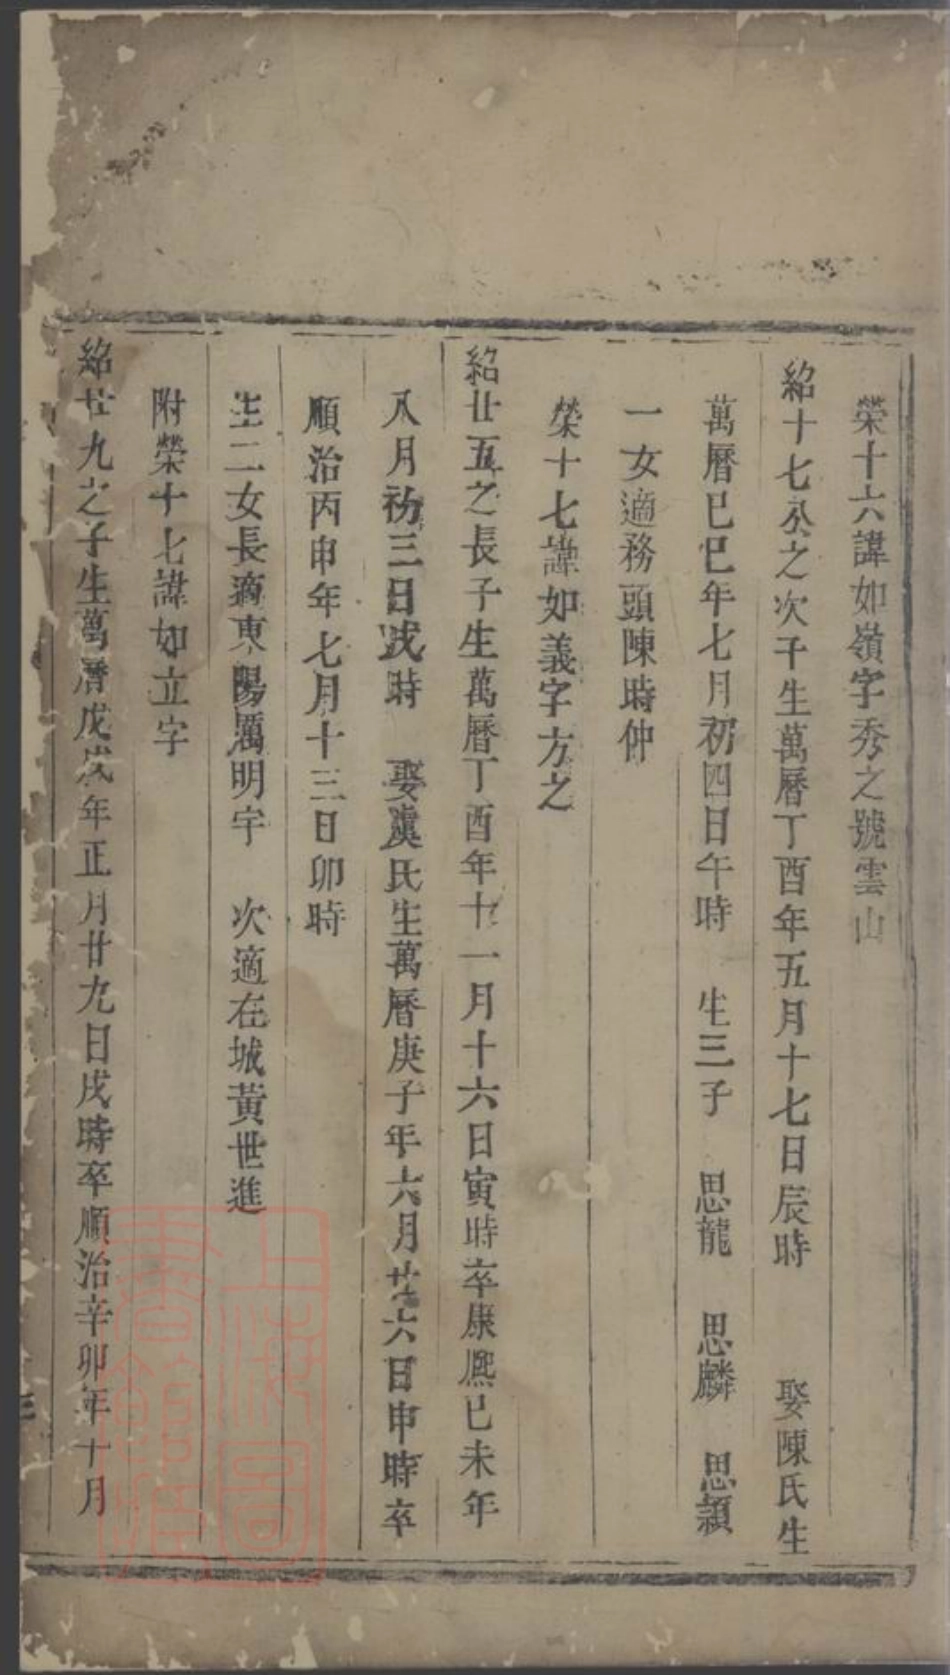 榮十六諱如嶺字秀之號雲山
紹十七公之次子生萬曆丁酉年五月十七日辰時 娶陳氏生
萬曆己巳年七月初四日午時 生三子 思龍 思麟 思頴
一女適務頭陳時仲
榮十七諱如義字方之
紹廿五之長子生萬曆丁酉年十一月十六日寅時卒康熈己未年
八月初三日戌時 娶虞氏生萬曆庚子年六月廿六日申時卒
順治丙申年七月十三日卯時
生二女長適東陽厲明宇 次適在城黃世進
附榮十七諱如立字
紹廿九之子生萬曆戊戌年正月廿九日戌時卒順治辛卯年十月
上海圖書館藏